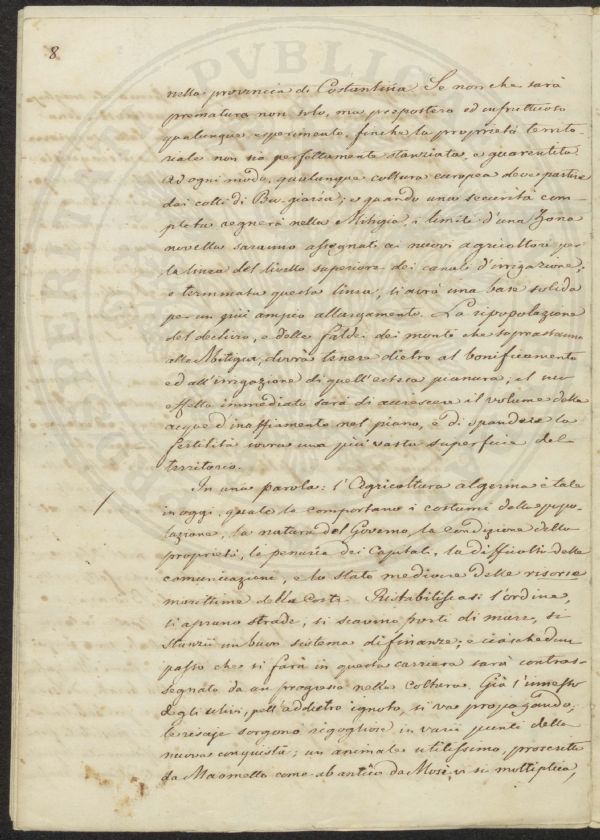 8
nella provincia di Costantina. Se non che sarà
prematura non solo, ma prepostera ed infruttuosa
qualunque esperimento, finchè la proprietà territo-
riale non sia perfettamente stanziata, e guarentita.
Ad ogni modo, qualunque coltura europea deve partire
dai colli di Bu-giaria; e quando una securità com-
pleta regnerà nella Mitigia, i limiti d'una Zona
novella saranno assegnati ai nuovi agricoltori per
la linea del livello superiore dei canali d'irrigazione;
e terminata questa linea, si avrà una base solida
per un più ampio allargamento. La ripopolazione
del declivio, e delle falde dei monti che soprastanno
alla Mitigia, dovrà tenere dietro al bonificamento
ed all'irrigazione di quell'estesa pianura; il suo
effetto immediato sarà di accrescere il volume delle
acque d'inaffiamento nel piano, e di spandere la
fertilità sovra una più vasta superficie del
territorio.
In una parola: l'Agricoltura algerina è tale
in oggi, quale la comportano i costumi della popo-
lazione, la natura del Governo, la condizione delle
proprietà, le penurie dei Capitali, la difficoltà delle
comunicazioni, e lo stato mediocre delle risorse
marittime della Costa. Ristabiliscasi l'ordine,
si aprano strade, si scavino porti di mare, si
stanzii un buon sistema di finanze; e ciaschedun
passo che si farà in questa carriera sarà contras-
segnato da un progresso nella Coltura. Già l'innesto
degli ulivi, pell'addietro ignoto, si va propagando;
le risaje sorgono rigogliose in varii punti della
nuova conquista; un animale utilissimo, proscritto
da Maometto come ab antico da Mosè, vi si moltiplica,